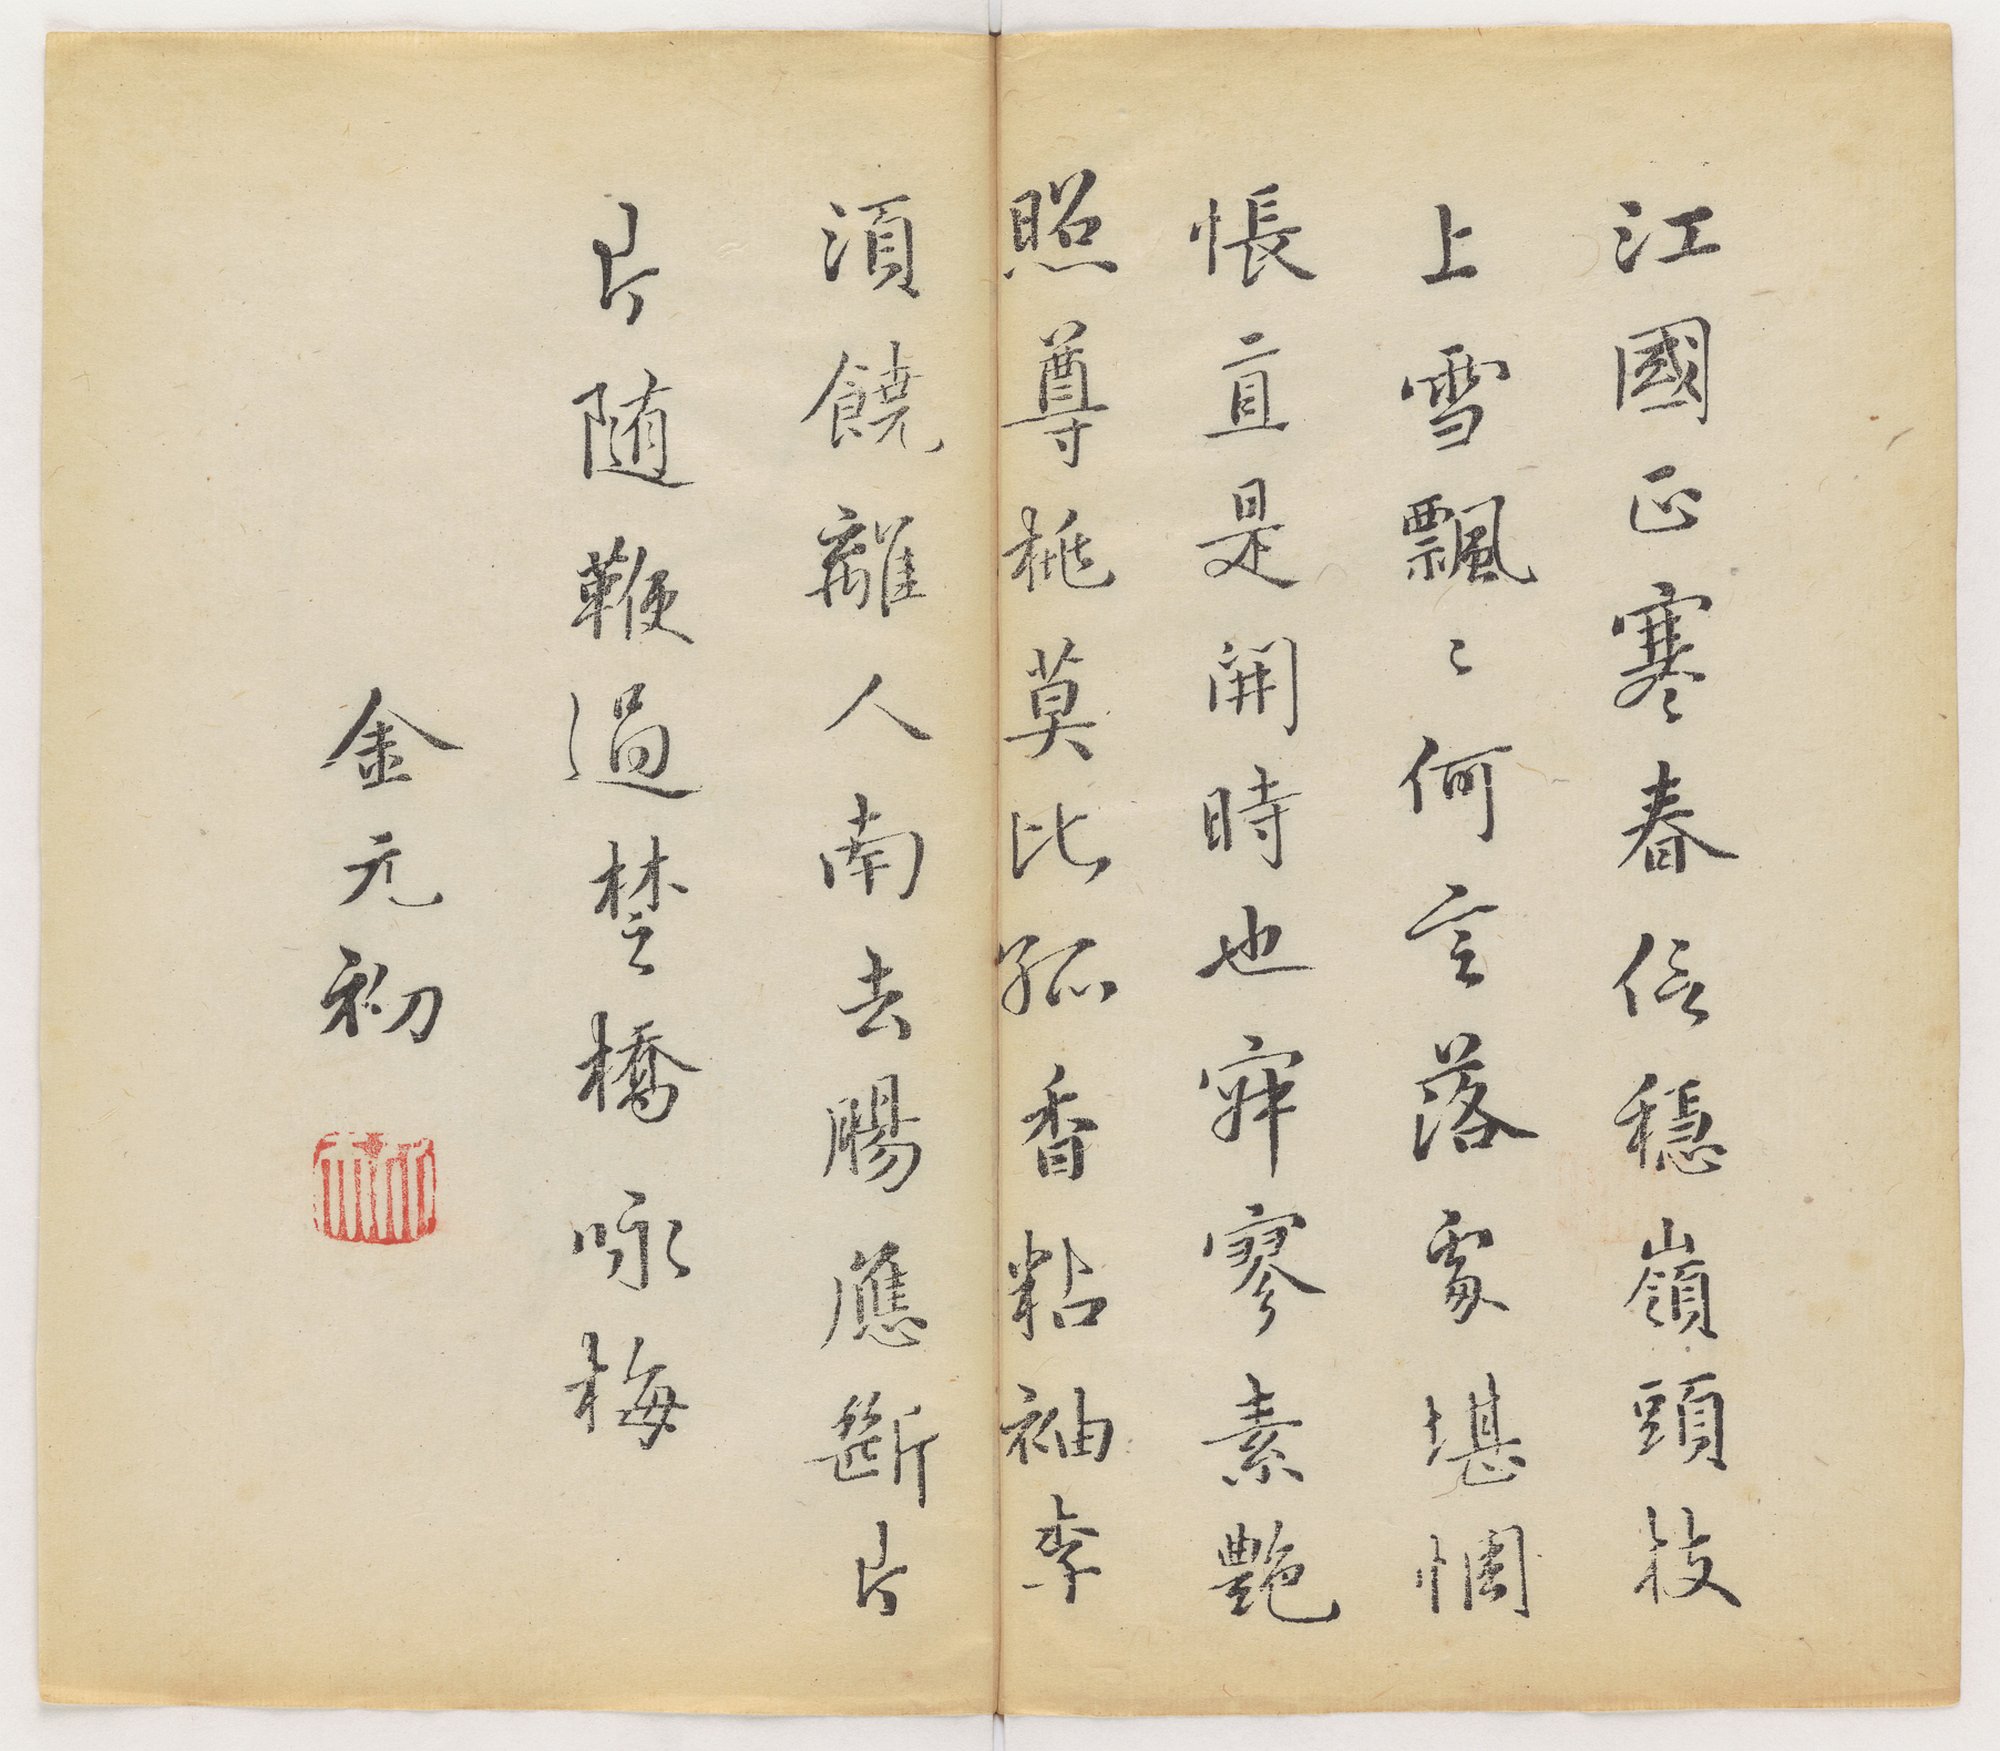 江國正寒春信穩嶺頭枝
上雪飄〻何言落處堪惆
悵直是開時也寂寥素艷
照尊桃莫比孤香粘袖李
須饒離人南去腸應斷片
片随鞭過楚橋咏梅
金元初